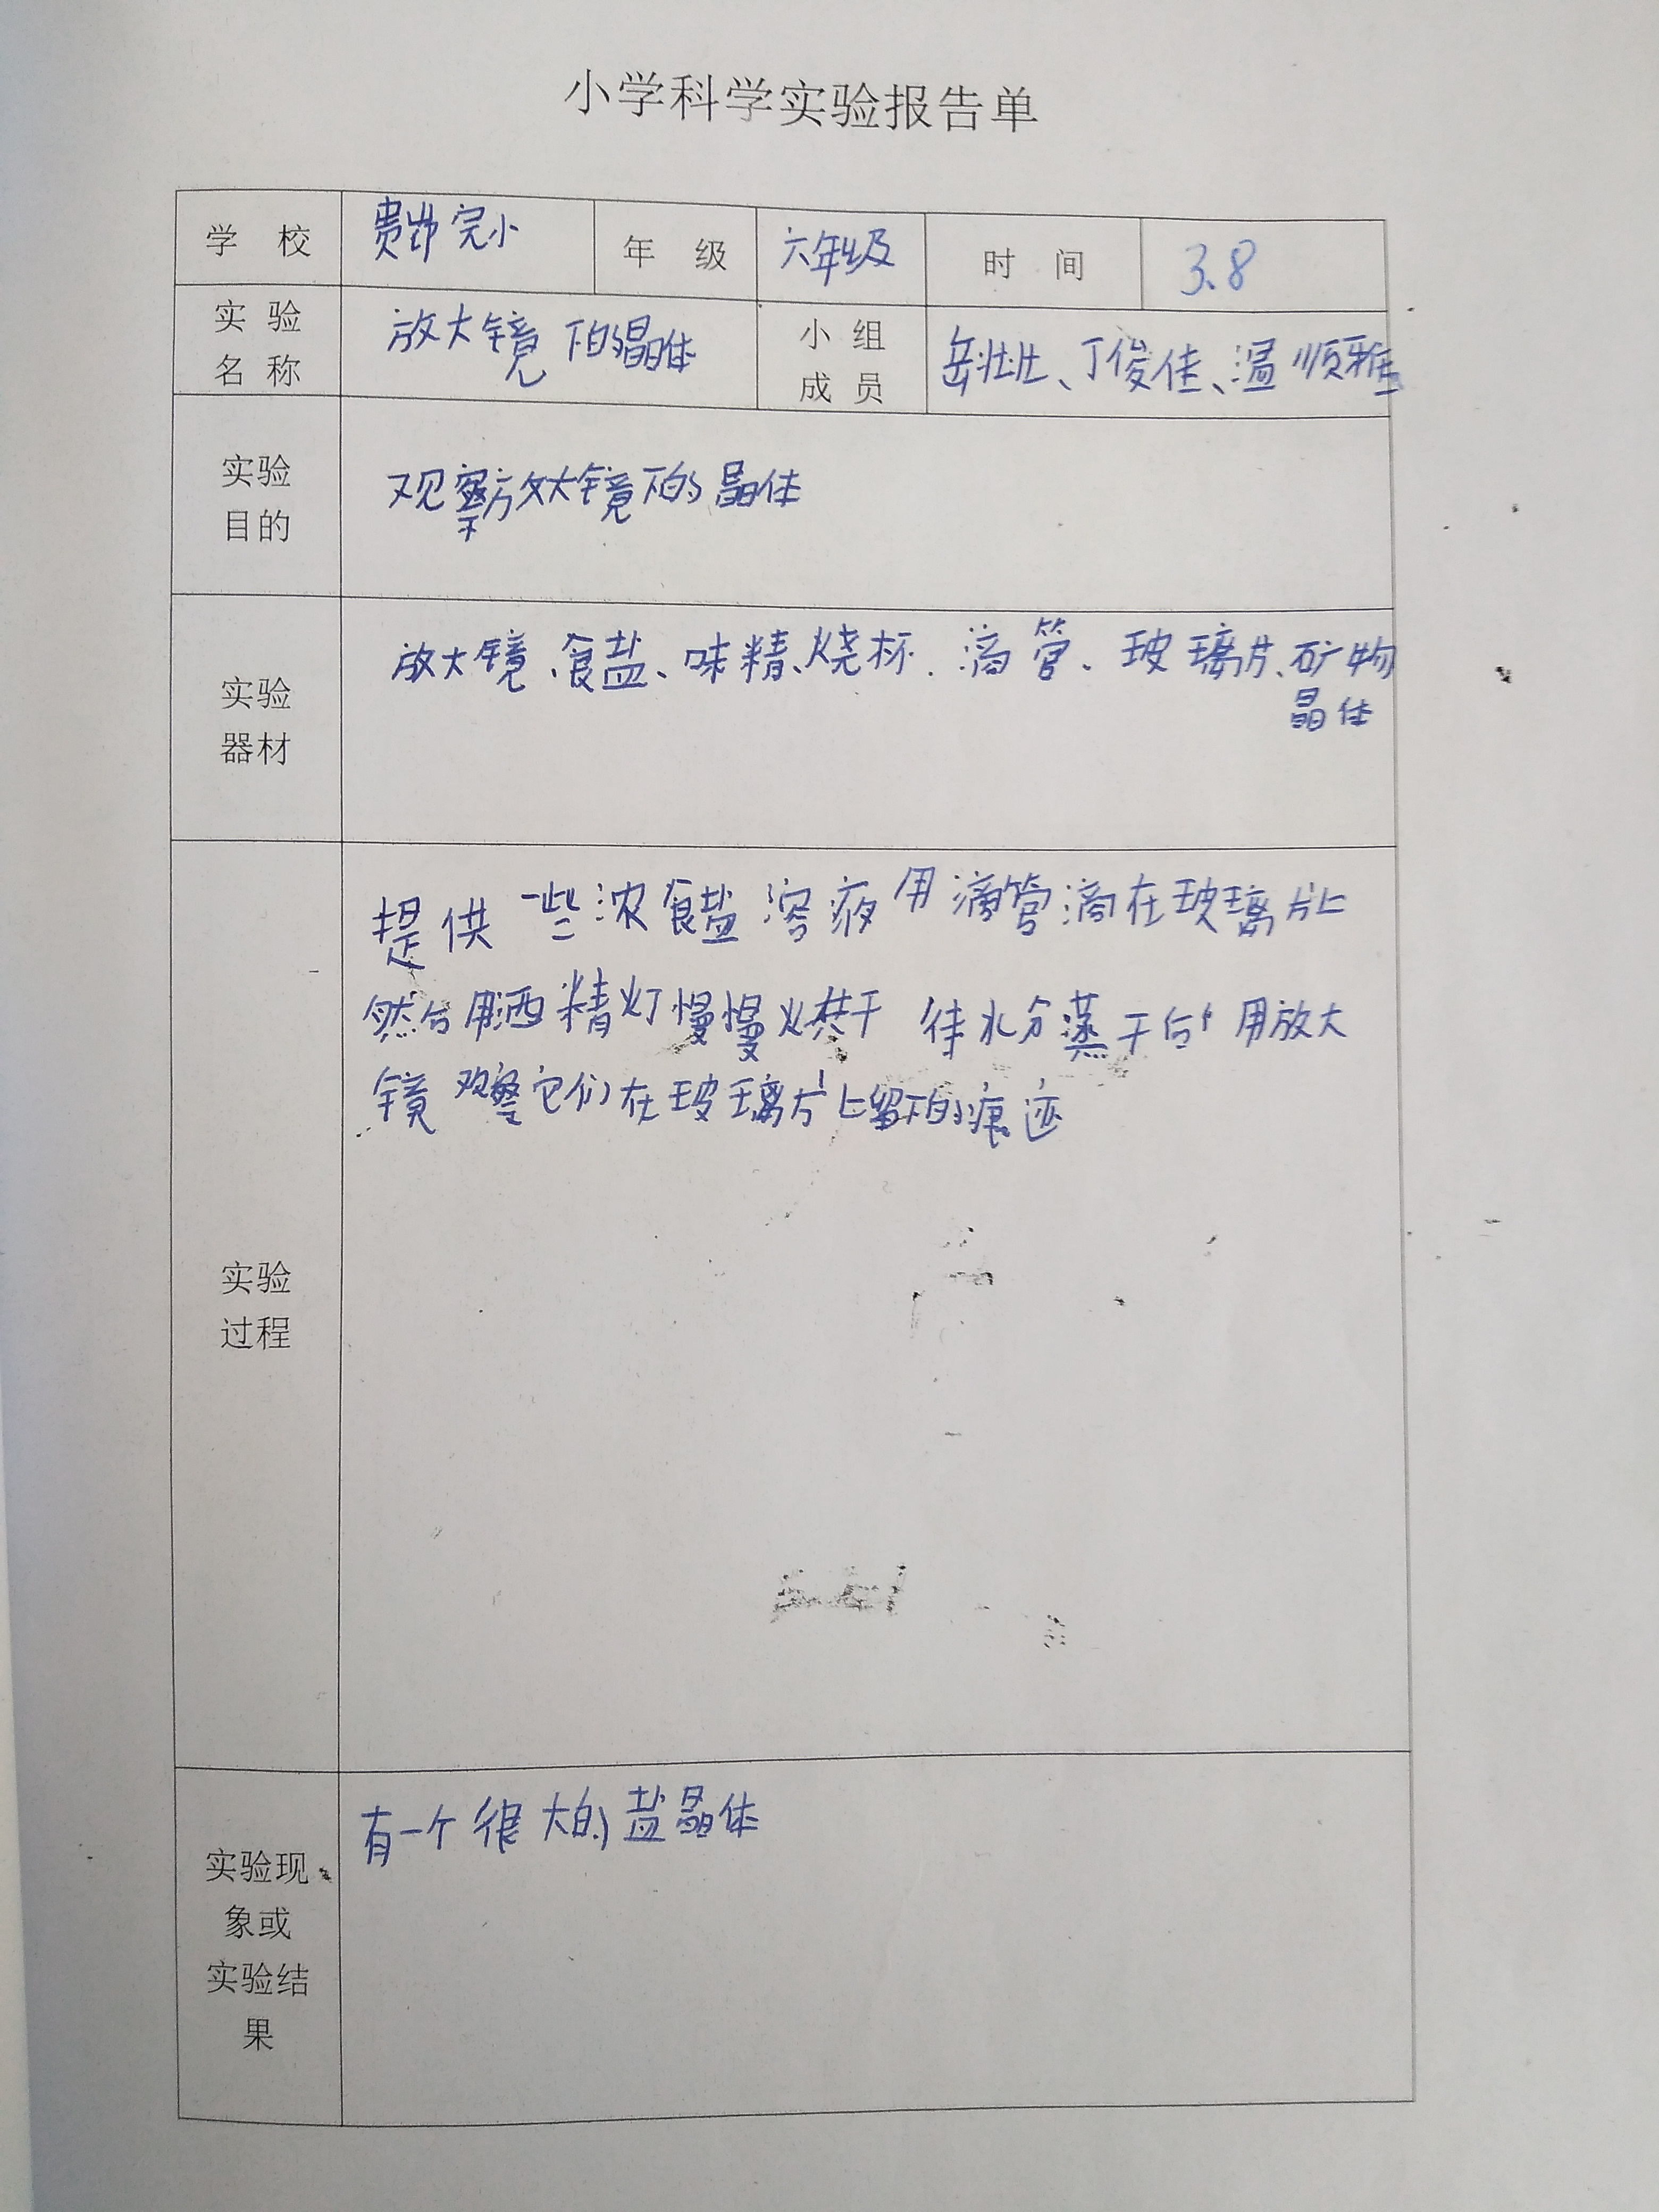 小学科学实验报告单
学 校 完小 年 级 六年级 时 间 3.8
实 验 名 称 放大镜下的晶体 小 组 成 员 岳壮壮、丁俊佳、温顺雅
实验
目的
观察放大镜下的晶体
实验
器材
放大镜、食盐、味精、烧杯、滴管、玻璃片、矿物
晶体
实验
过程
提供一些浓食盐溶液用滴管滴在玻璃片上
然后用洒精灯慢慢烘干 待水分蒸干后 用放大
镜观察它们在玻璃片上留下的痕迹
实验现
象或
实验结
果
有一个很大的盐晶体